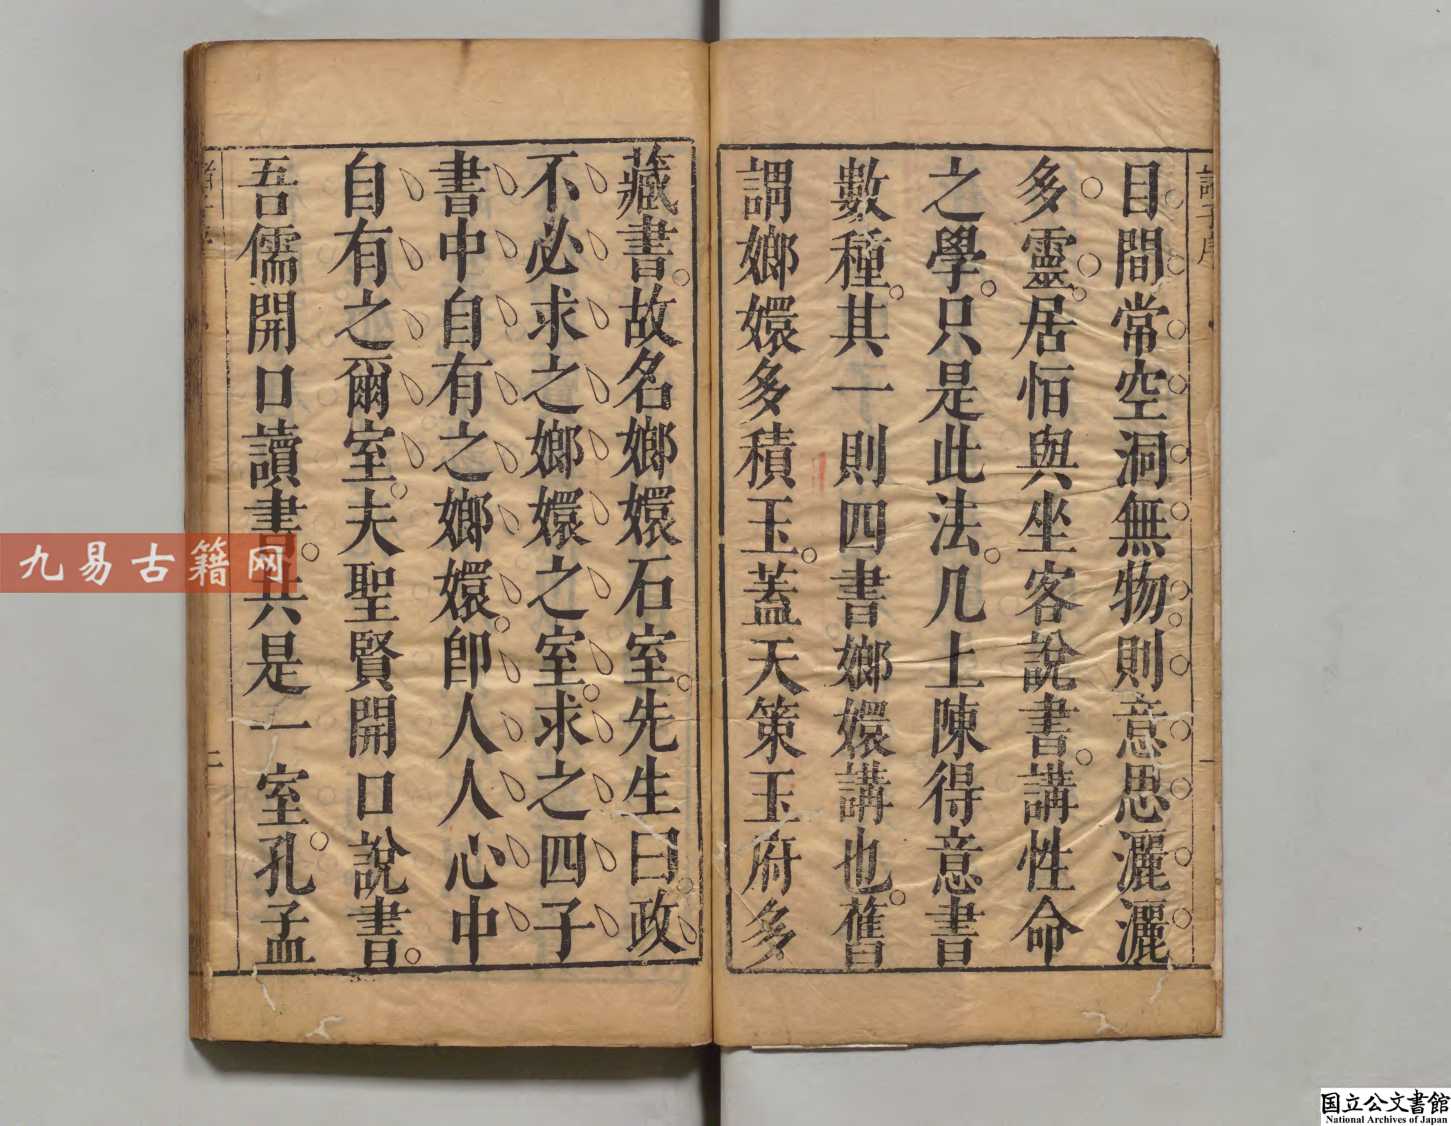 目間常空洞無物則意思灑灑
多靈居恒與坐客說書講性命
之學只是此法几上陳得意書
數種其一則四書嫏嬛講也舊
謂嫏嬛多積玉蓋天策玉府多
藏書故名嫏嬛石室先生曰政
不必求之嫏嬛之室求之四子
書中自有之嫏嬛卽人人心中
自有之爾室夫聖賢開口說書
吾儒開口讀書共是一室孔孟
二
九易古籍网
国立公文書館
National Archives of Japan